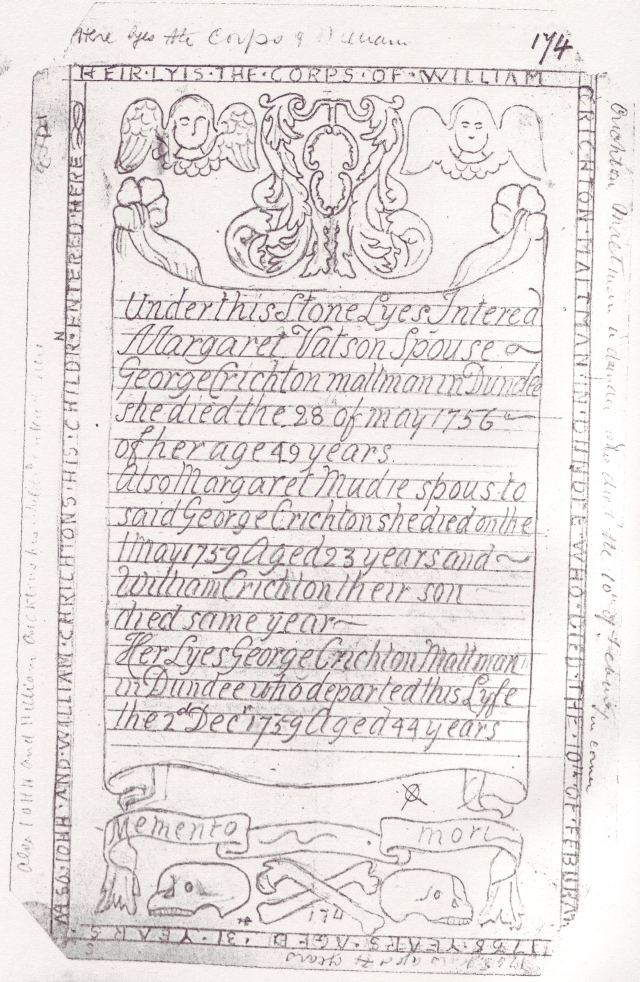 Here lyes the Corps of William
174
HEIR·LYIS·THE·CORPS·OF·WILLIAM
CRICHTON·MALTMAN·IN·DUNDEE·WHO·DIED·THE·10TH·OF·FEBUR
YEARS·AGED·31·YEARS
ALSO·IOHN·AND·WILLIAM·CHRICHTONS·HIS·CHILDR·ENTERED·HERE
N
Under this Stone Lyes Intered
Margaret Vatson Spouse
George Crichton maltman in Dundee
she died the 28 of may 1756
of her age 49 years.
Also Margaret Mudie spous to
said George Crichton she died on the
1 May 1759 Aged 23 years and
William Crichton their son
died same year
Her Lyes George Crichton Maltman
in Dundee who departed this Lyfe
the 2d Decr 1759 Aged 44 years
Memento mori
174
Crichton Maltman in dundee who died the 10 of
Also IOHN and William
years